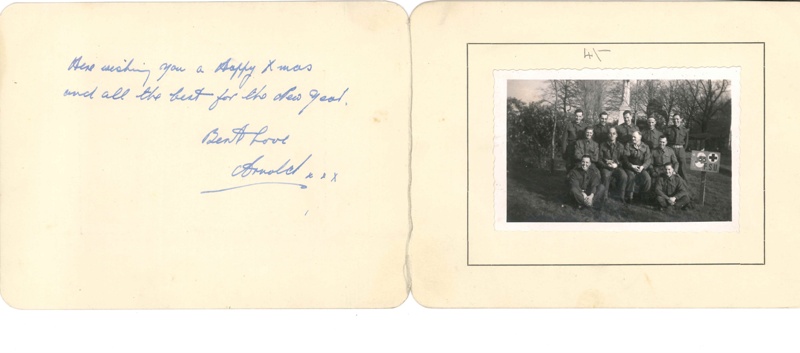 Here wishing you a Happy Xmas
and all the best for the New Year.
Best Love
Arnold x x x
4/-